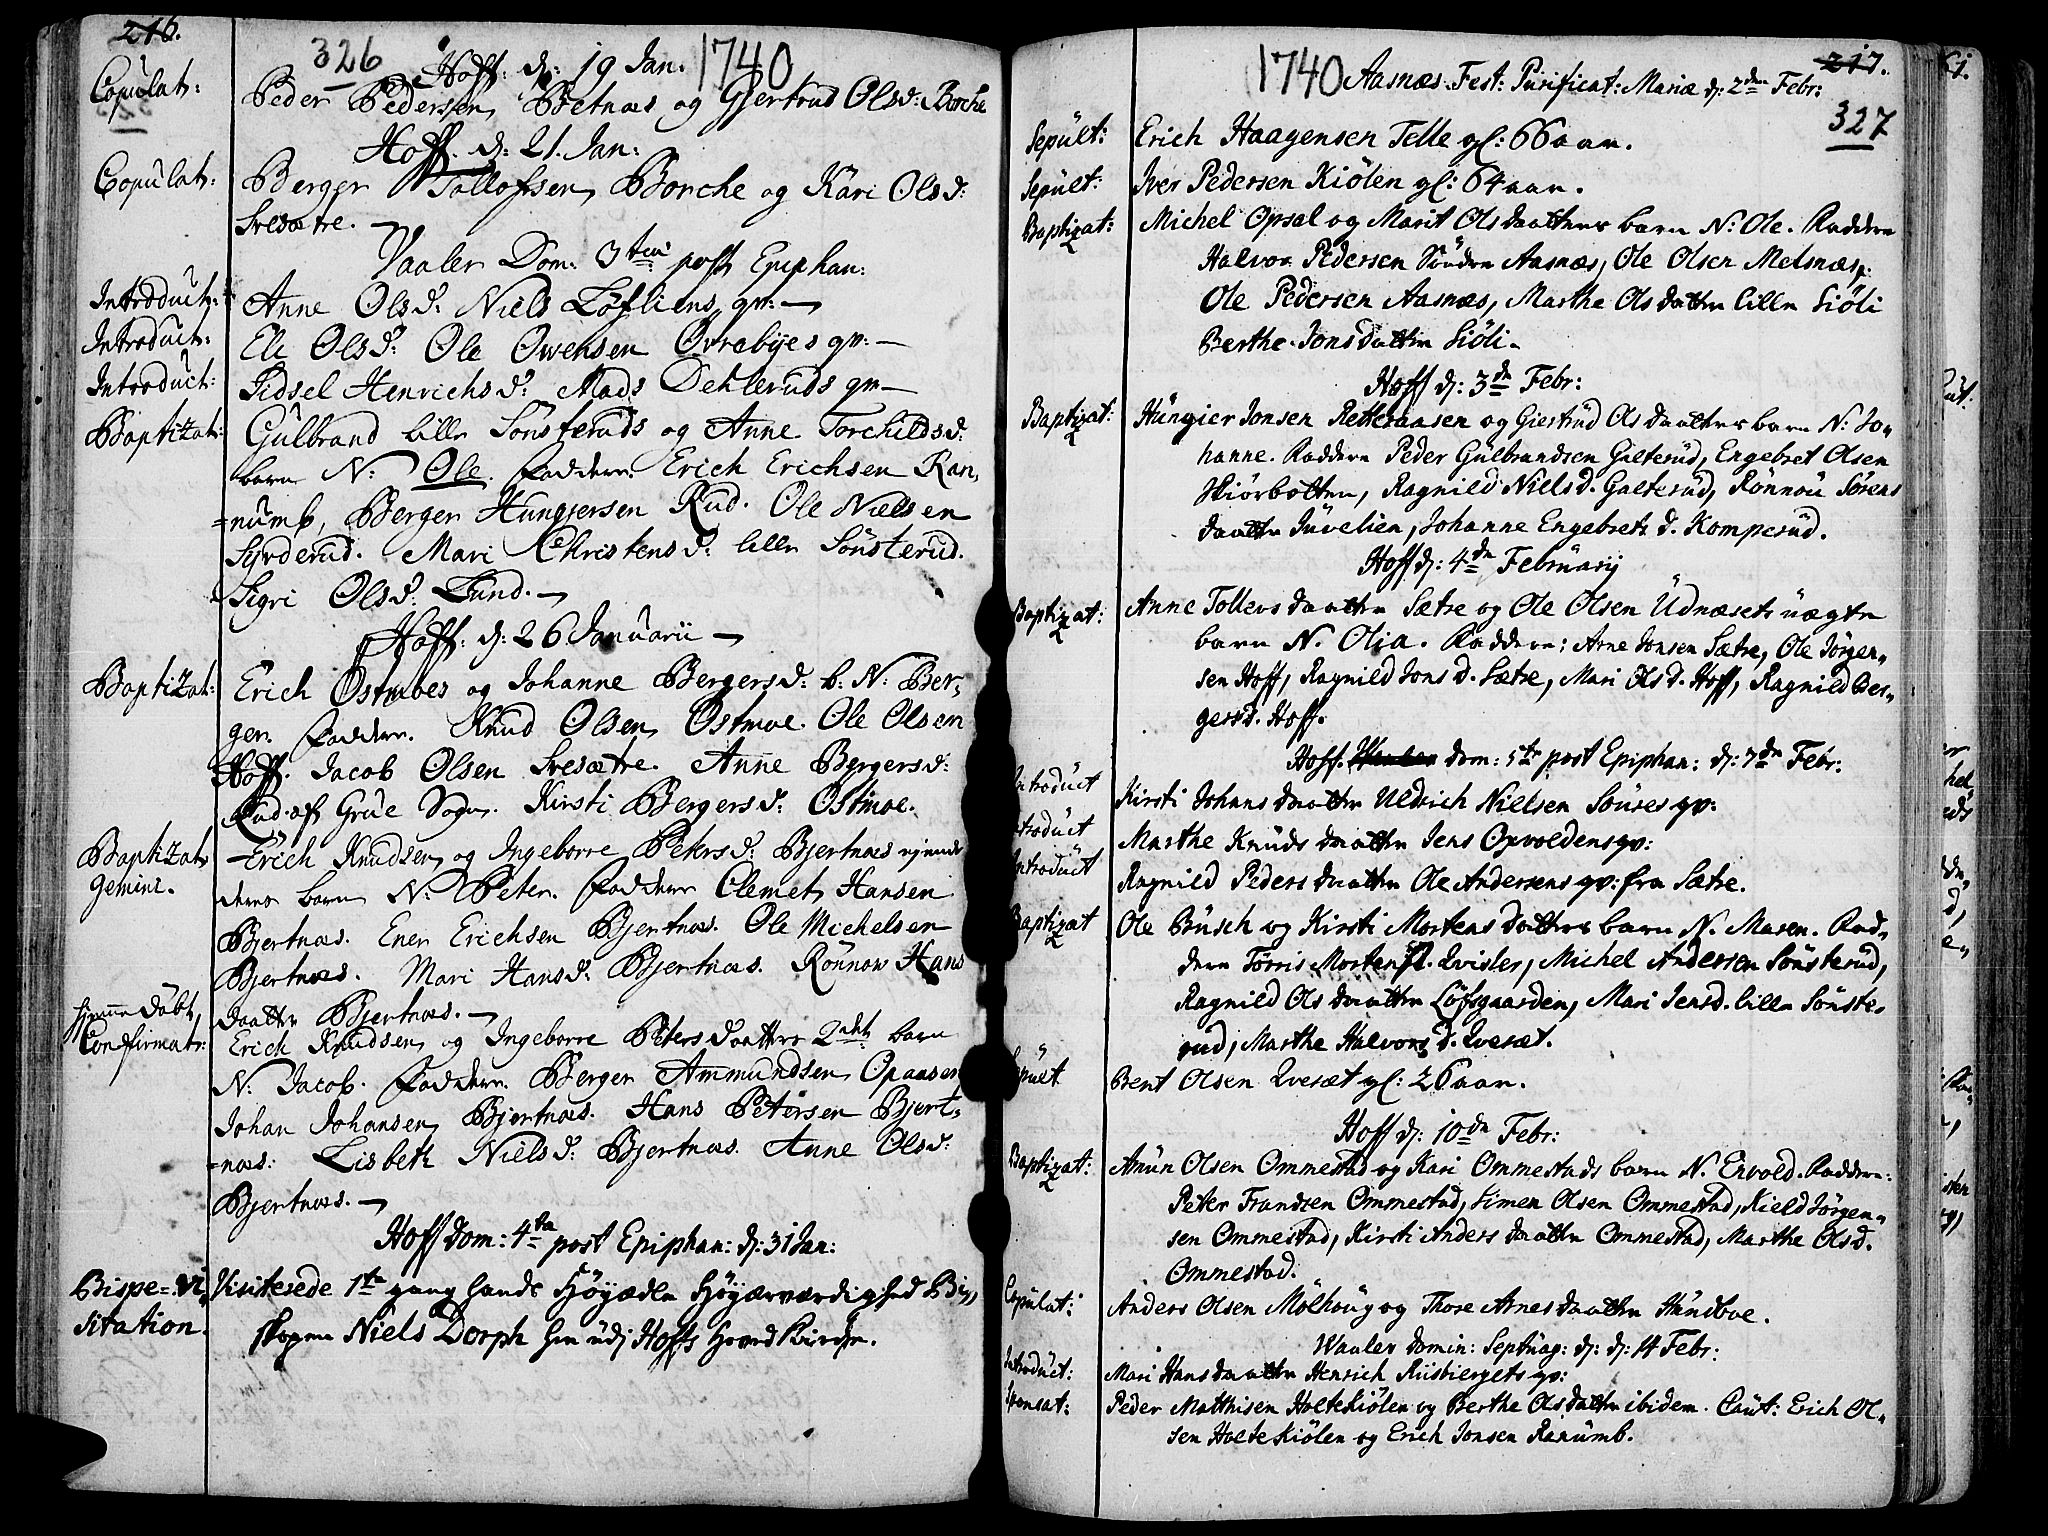 216.
326 Hoff: d: 19 Jan. 1740
Copulat: Peder Pedersen Bætnæs og Gjertrud Olsd: Borche
Hoff. d: 21. Jan:
Copulat: Berger Tollofsen Borche og Kari Olsd:
Svesætre. —
Vaaler Dom: 3tia post Epiphan:
Introduct: Anne Olsd: Niels Løfliens qv: —
Introduct: Eli Olsd: Ole Owensen Øvrebyes qv: —
Introduct: Sidsel Henrichsd: Mads Dehleruds qv —
Baptizat: Gulbrand lille Sønsteruds og Anne Torchildsd:
barn N: Ole. Faddere Erich Erichsen Ran,
=numb, Berger Hungiersen Rud. Ole Nielsen
Syrderud. Mari Christensd: lille Sønsterud.
Sigri Olsd: Lund. —
Hoff: d: 26 Januarii —
Baptizat: Erich Ostmoes og Johanne Bergersd: b: N: Ber,
ger. Faddere. Knud Olsen Ostmoe. Ole Olsen
Hoff. Jacob Olsen Svesætre. Anne Bergersd:
Rud af Grue Sogn. Kirsti Bergersd: Ostmoe.
Baptizat Erich Knudsen og Ingeborre Petersd: Bjertnæs
gemini. barn N: Peter. Faddere Clemet Hansen
Bjertnæs. Ener Erichsen Bjertnæs. Ole Michelsen
Bjertnæs. Mari Hansd: Bjertnæs. Rønnow Hans
daatter Bjertnæs. —
hjemmedøbt, Erich Knudsen og Ingeborre Petersdaatters 2det barn
Confirmat: N: Jacob. Faddere. Berger Ammundsen Opaaser
Johan Johansen Bjertnæs. Hans Petersen Bjert=
=næs: Lisbeth Nielsd: Bjertnæs. Anne Olsd:
Bjertnæs. —
Hoff Dom: 4ta post Epiphan: d: 31 Jan:
Bispe=Vi, Visiterede 1te gang hands Høyædle Høyærværdighed Bi,,
sitation. skopen Niels Dorph her udj Hoffs Hoved Kirche.
217.
1740 Aasnæs. Fest: Purificat: Mariæ d: 2den Febr:
327
Sepult: Erich Haagensen Telle gl: 66 aar.
Sepult: Iver Pedersen Kiølen gl: 64 aar.
Baptizat: Michel Opsal og Marit Olsdaatters barn N: Ole. Faddere
Halvor Pedersen Søndre Aasnæs, Ole Olsen Melsnæs,
Ole Pedersen Aasnæs, Marthe Olsdatter lille Siøli
Berthe Jonsdatter Siøli.
Hoff d: 3de Febr:
Baptizat: Hungier Jonsen Retteraasen og Giertrud Olsdaatters barn N: Jo,
hanne. Faddere Peder Gulbrandsen Galterud, Engebret Olsen
Skiørbotten, Ragnild Nielsd. Galterud, Rønnou Sørens
daatter Juvelien, Johanne Engebretsd. Komperud.
Hoff d: 4de Februarij
Baptizat: Anne Tollevsdaatter Sætre og Ole Olsen Udnæsets uægte
barn N. Olia. Faddere: Arne Jonsen Sætre, Ole Jørgen,
sen Hoff, Ragnild Jonsd. Sætre, Mari Olsd. Hoff, Ragnild Ber,
gersd. Hoff.
Hoff. Dom: 5te post Epiphan: d: 7de Febr:
Introduct Kirsti Johansdaatter Uldrich Nielsen Søures qv:
Introduct Marthe Knudsdaatter Jens Opvoldens qv:
Introduct Ragnild Pedersdaatter Ole Andersens qv: fra Sætre.
Baptizat Ole Busch og Kirsti Mortensdatters barn N. Maren. Fad,
dere Torris Mortens. Qvisler, Michel Andersen Sønsterud,
Ragnild Olsdaatter Løfsgaarden, Mari Jensd. lille Sønste,
rud, Marthe Halvorsd. Qvesæt.
Sepult Bent Olsen Qvesæt gl: 26 aar.
Hoff d: 10de Febr:
Baptizat: Amun Olsen Ommestad og Kari Ommestads barn N. Envold. Faddere:
Peter Frandsen Ommestad, Simen Olsen Ommestad, Kield Jørgen,
sen Ommestad, Kirsti Andersdaatter Ommestad, Marthe Olsd.
Ommestad.
Copulat: Anders Olsen Mølhoug og Thore Arnesdaatter Hundboe.
Waaler Domin: Septuag: d: d: 14 Febr:
Introduct: Mari Hansdaatter Henrich Riisbiergets qv:
Sponsat: Peder Matthisen Holtekiølen og Berthe Olsdatter ibidem. Caut: Erich Ol,
sen Holtekiølen og Erich Jonsen Ranumb.